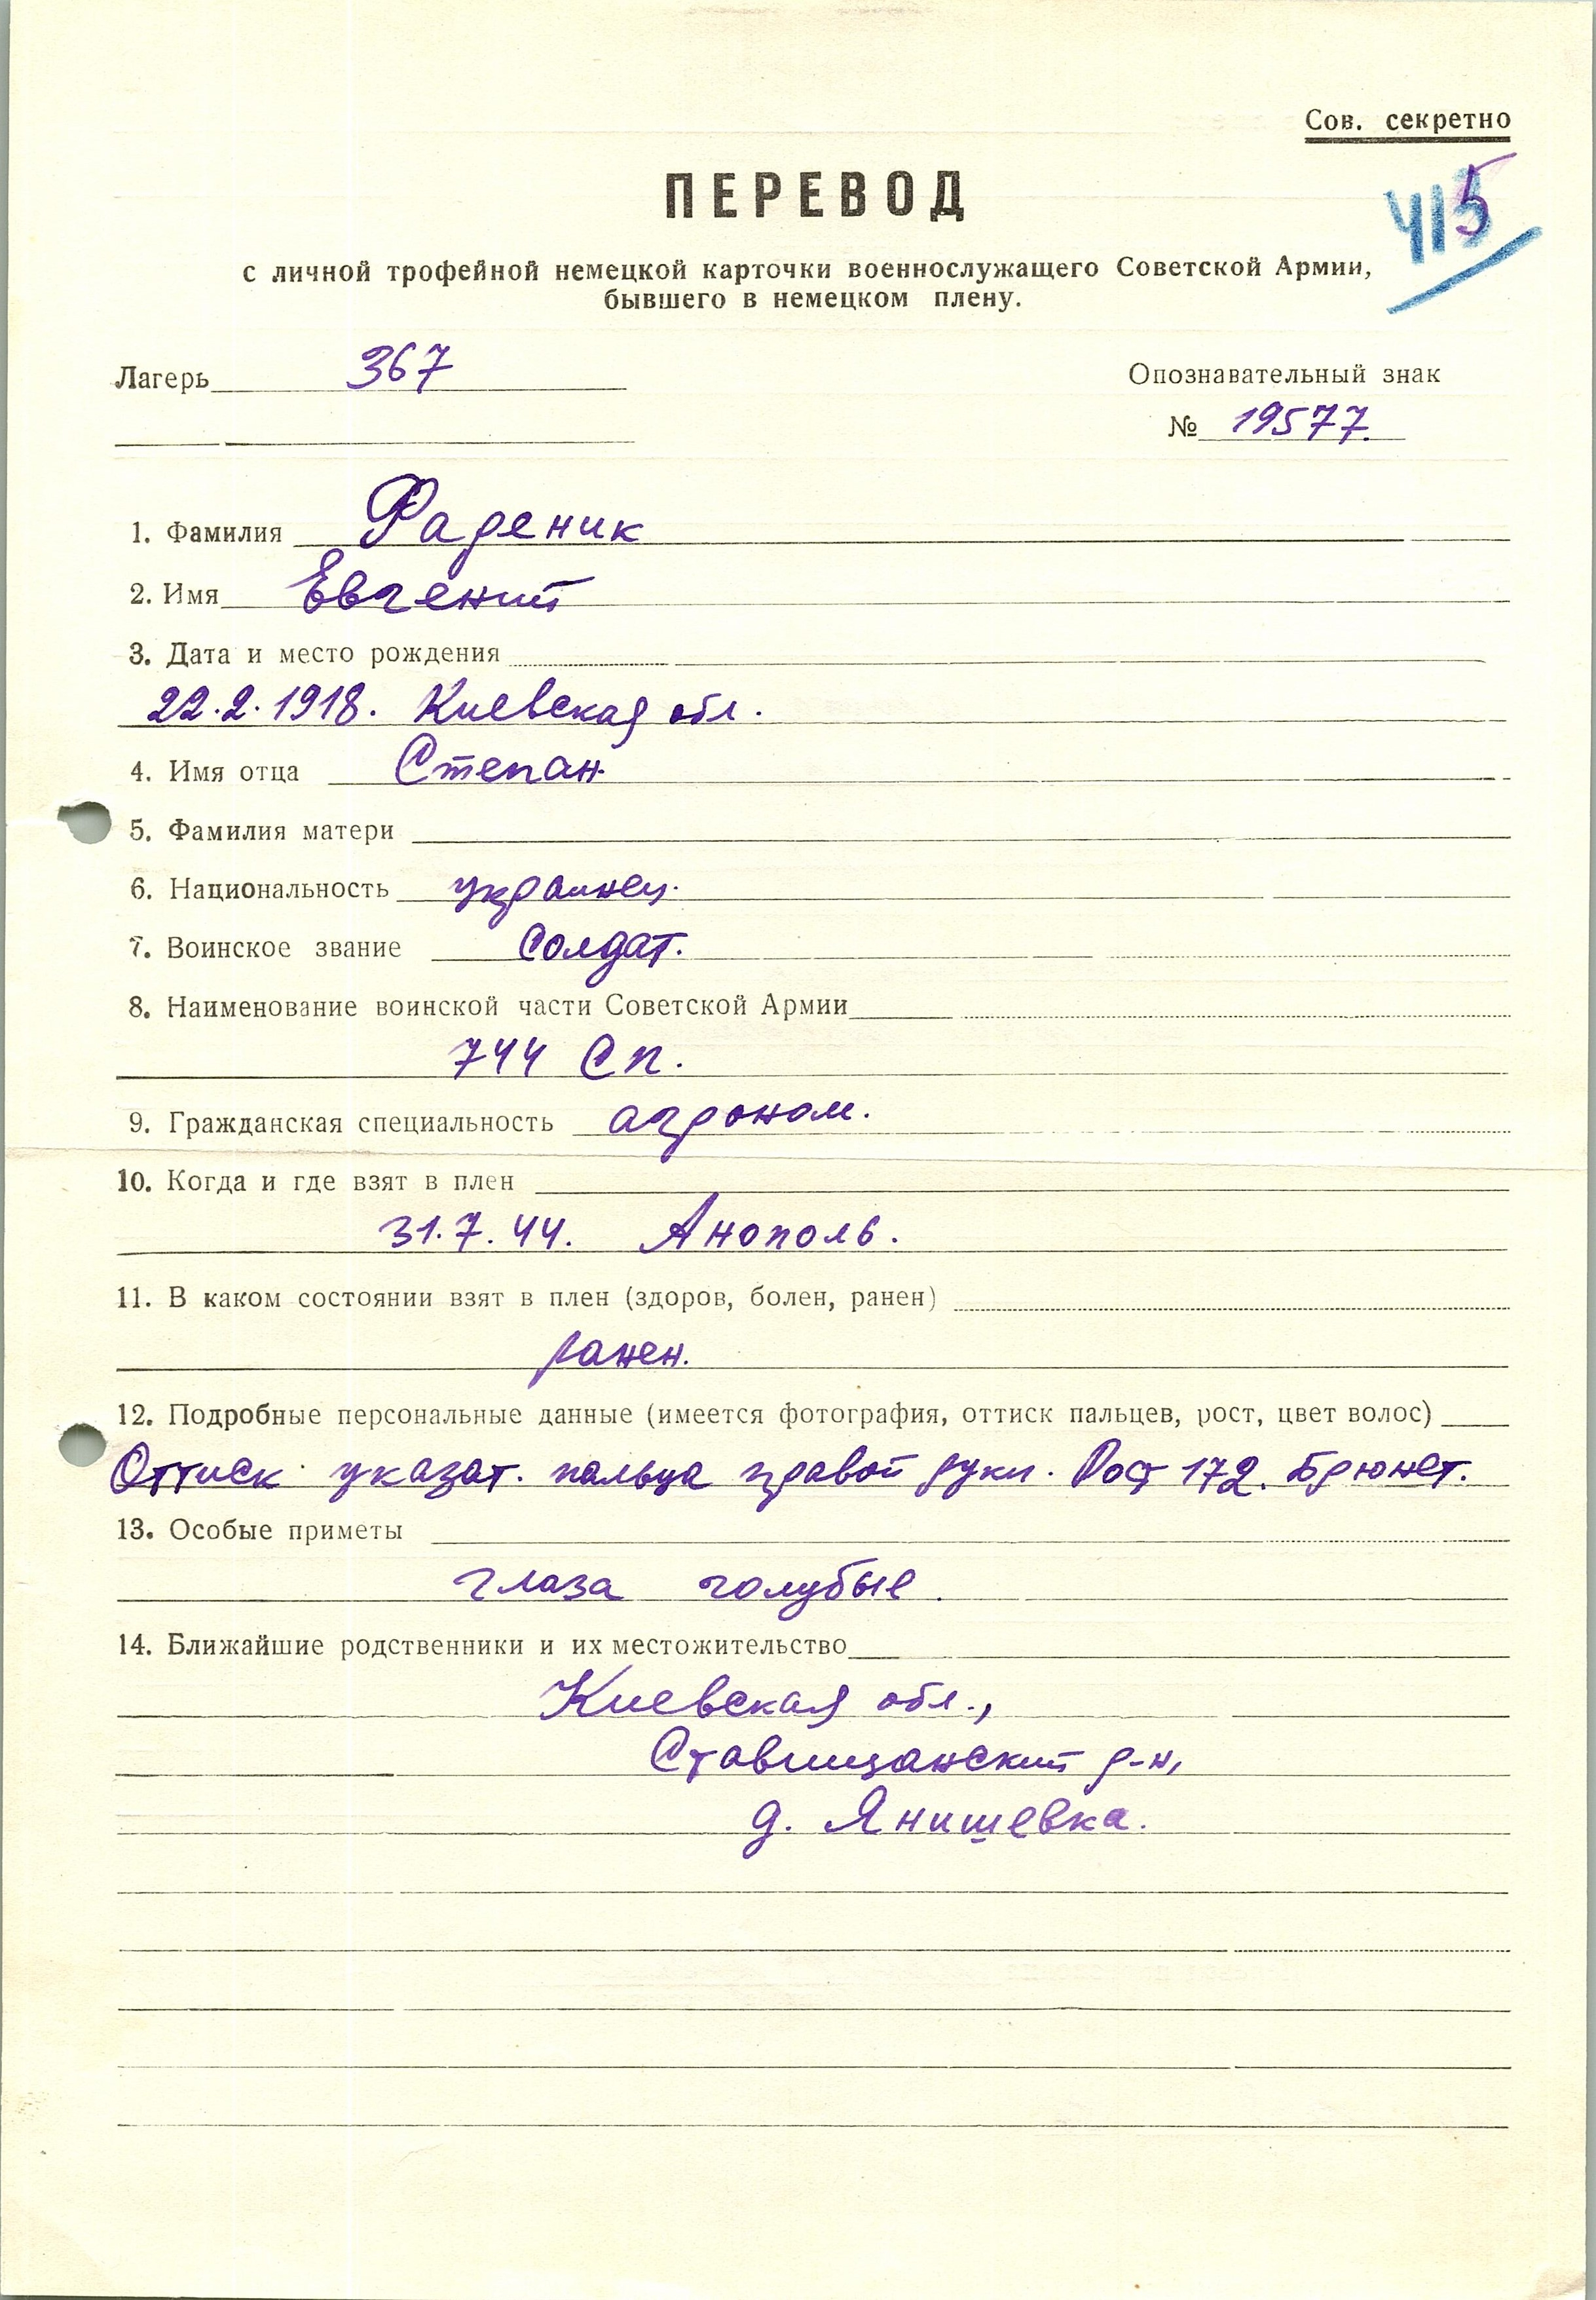 Сов. секретно
ПЕРЕВОД
415
с личной трофейной немецкой карточки военнослужащего Советской Армии,
бывшего в немецком плену.
Лагерь 367
Опознавательный знак
№ 19577.
1. Фамилия Фаденик
2. Имя Евгений
3. Дата и место рождения
22.2.1918. Киевская обл.
4. Имя отца Степан
5. Фамилия матери
6. Национальность украинец.
7. Воинское звание Солдат.
8. Наименование воинской части Советской Армии
744 Сп.
9. Гражданская специальность агроном.
10. Когда и где взят в плен
31.7.44. Анополь.
11. В каком состоянии взят в плен (здоров, болен, ранен)
ранен.
12. Подробные персональные данные (имеется фотография, оттиск пальцев, рост, цвет волос)
Оттиск указат. пальца правой руки. Рост 172. Брюнет.
13. Особые приметы
глаза голубые.
14. Ближайшие родственники и их местожительство
Киевская обл.,
Ставищанский р-н,
д. Янишевка.